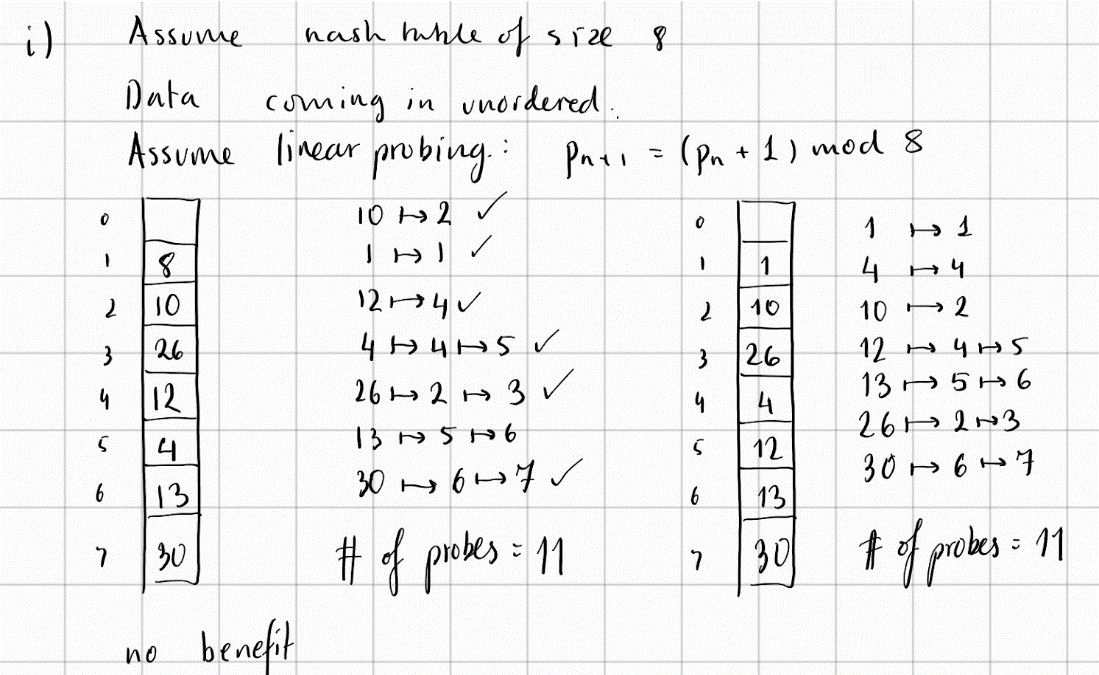 i) Assume hash table of size 8
Data coming in unordered.
Assume linear probing: pn+1 = (pn + 1) mod 8
0
1 8
2 10
3 26
4 12
5 4
6 13
7 30
10 ↦ 2 ✓
1 ↦ 1 ✓
12 ↦ 4 ✓
4 ↦ 4 ↦ 5 ✓
26 ↦ 2 ↦ 3 ✓
13 ↦ 5 ↦ 6
30 ↦ 6 ↦ 7 ✓
# of probes = 11
0
1 1
2 10
3 26
4 4
5 12
6 13
7 30
1 ↦ 1
4 ↦ 4
10 ↦ 2
12 ↦ 4 ↦ 5
13 ↦ 5 ↦ 6
26 ↦ 2 ↦ 3
30 ↦ 6 ↦ 7
# of probes = 11
no benefit